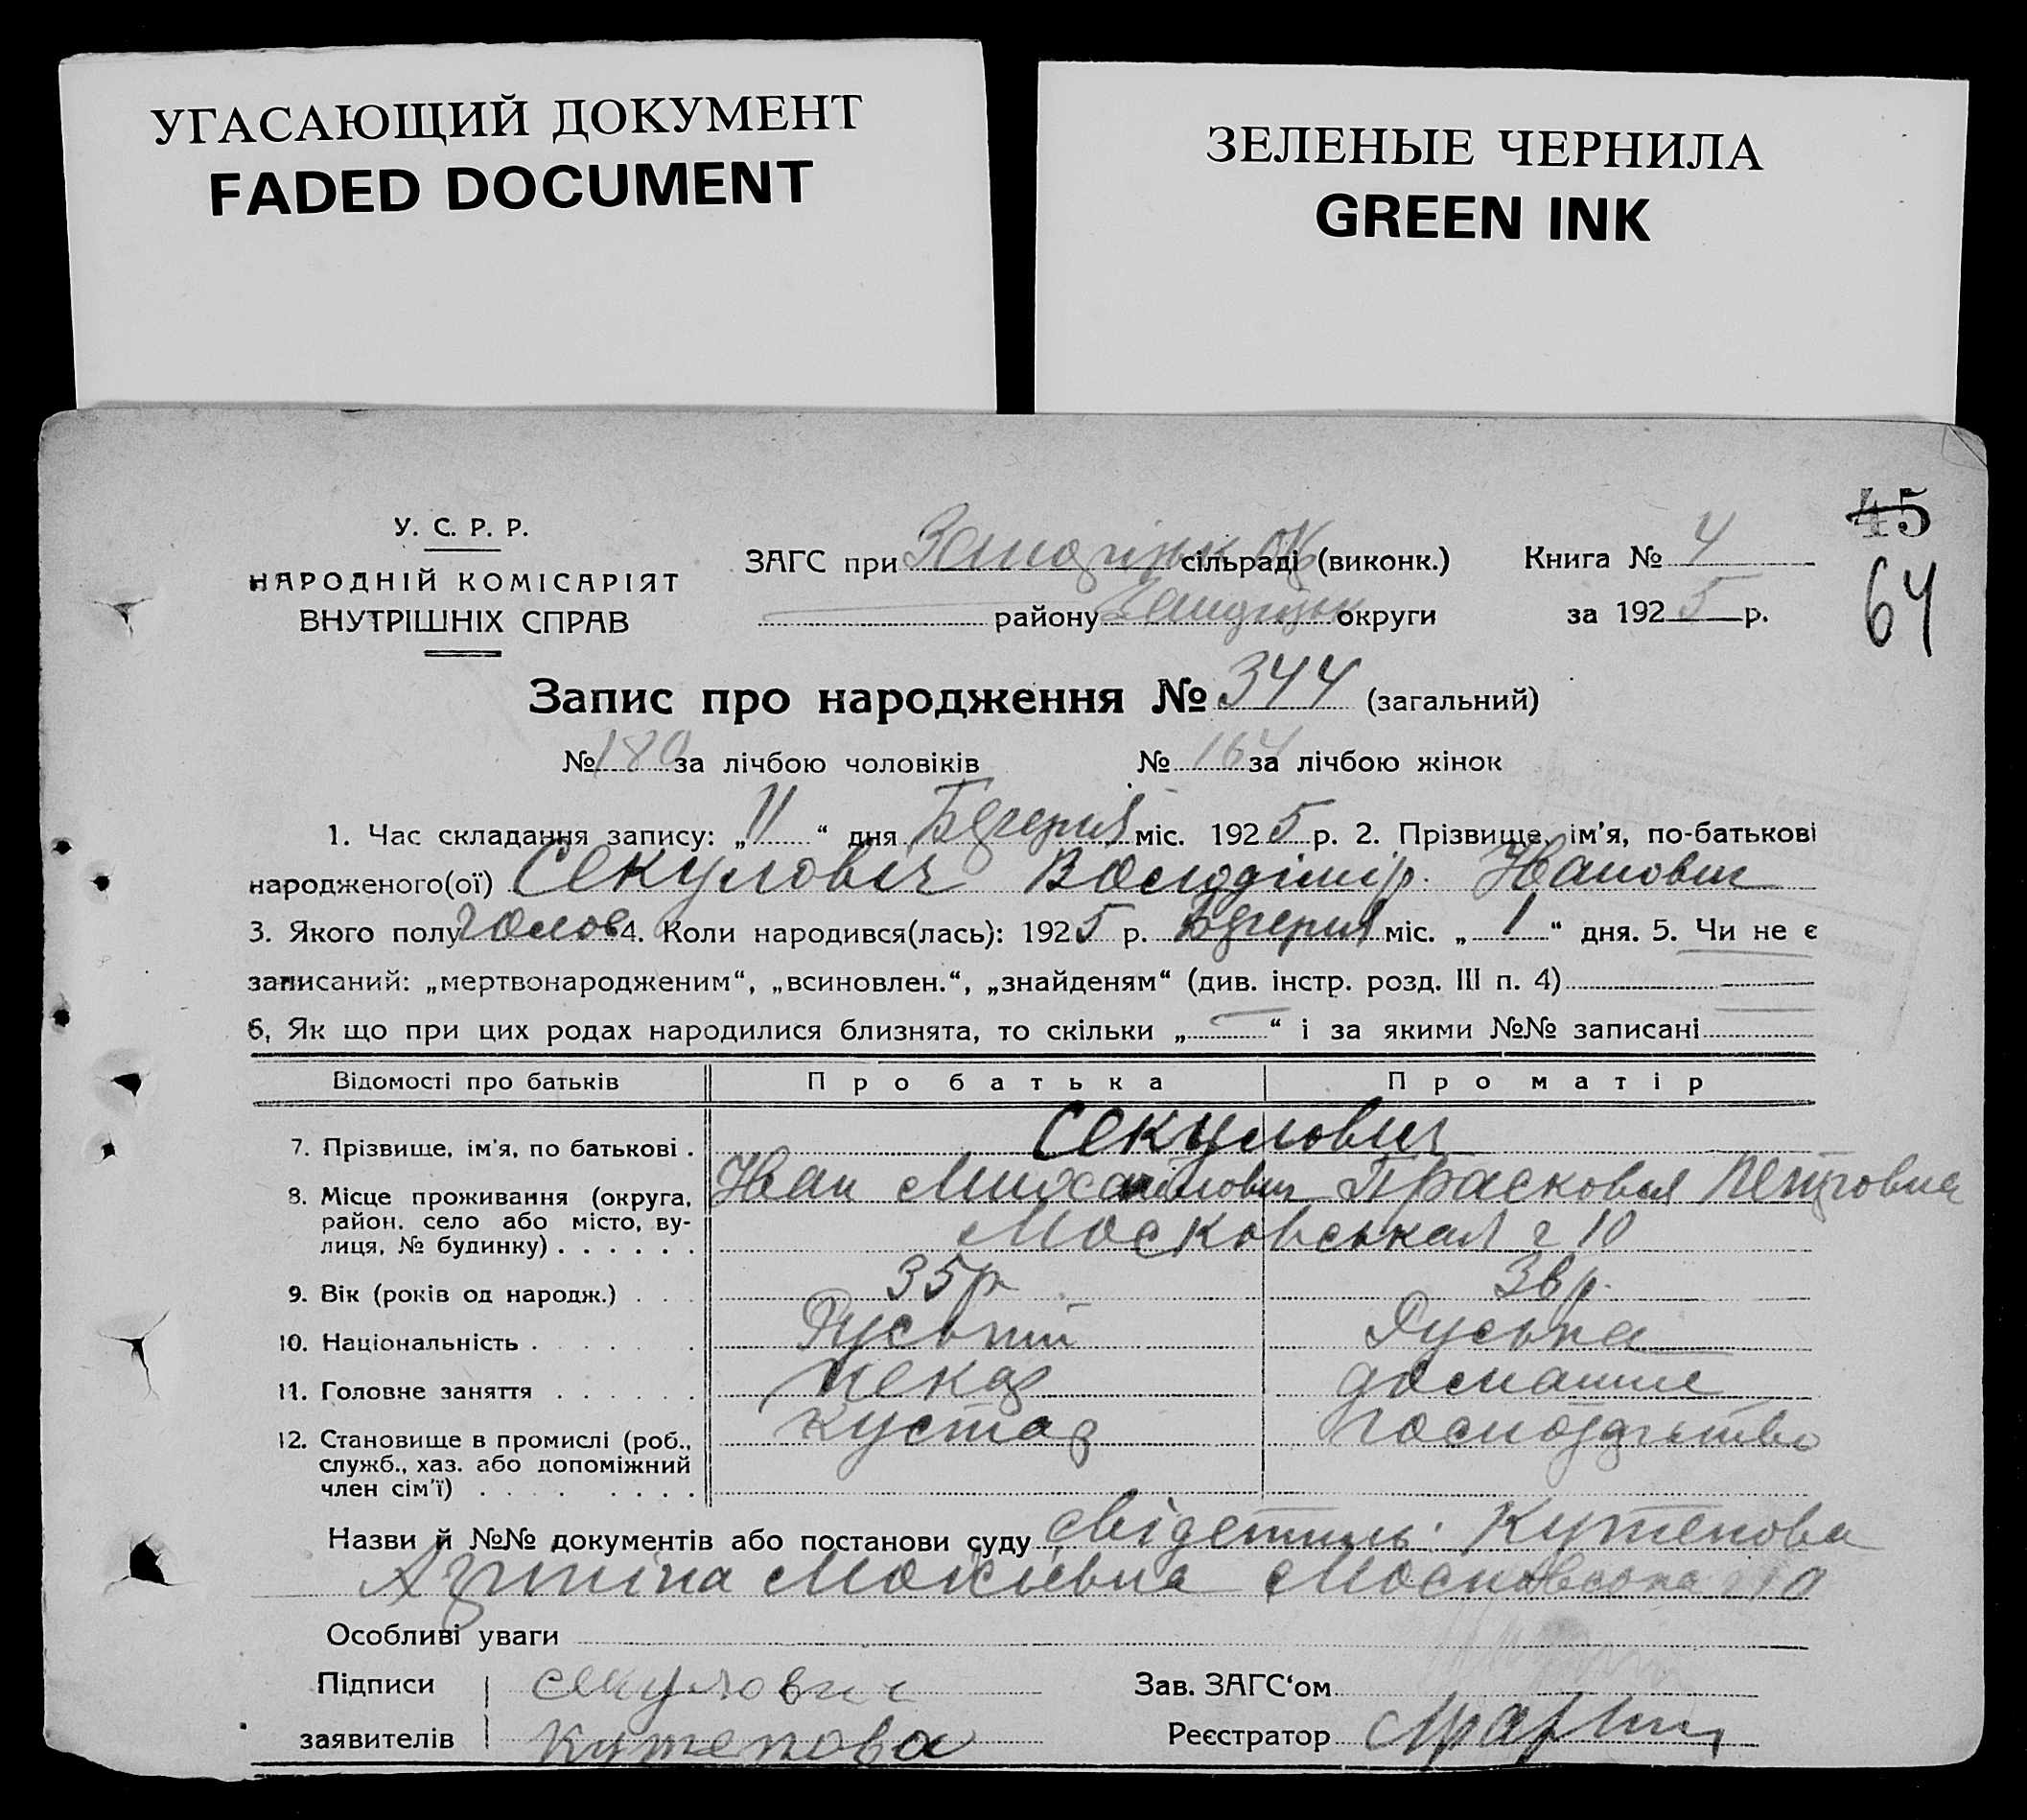 УГАСАЮЩИЙ ДОКУМЕНТ
FADED DOCUMENT
ЗЕЛЕНЫЕ ЧЕРНИЛА
GREEN INK
45
64
У. С. Р. Р.
НАРОДНІЙ КОМІСАРІЯТ
ВНУТРІШНІХ СПРАВ
ЗАГС при сільраді (виконк.)
району округи
Книга № 4
за 1925 р.
Запис про народження № 344 (загальний)
№ 180 за лічбою чоловіків № 164 за лічбою жінок
1. Час складання запису: „11“ дня міс. 1925 р. 2. Прізвище, ім'я, по-батькові
народженого(ої) Секулович Володдімір Іванович
3. Якого полу чолов 4. Коли народився(лась): 1925 р. міс. „1“ дня. 5. Чи не є
записаний: „мертвонародженим“, „всиновлен.“, „знайденям“ (див. інстр. розд. III п. 4)
6, Як що при цих родах народилися близнята, то скільки „—“ і за якими №№ записані
Відомості про батьків Про батька Про матір
7. Прізвище, ім'я, по батькові . Секулович
Іван Михайлович Прасковья Петровна
8. Місце проживання (округа,
район. село або місто, ву-
лиця, № будинку) . . . . . . Московськая 10
9. Вік (років од народж.) . . . 35 р 36 р.
10. Національність . . . . . . Руський Руська
11. Головне заняття . . . . . . пекар домашне
кустар господарство
12. Становище в промислі (роб.,
служб., хаз. або допоміжний
член сім'ї) . . . . . . . .
Назви й №№ документів або постанови суду свідетиль: Кутепова
Мокієвна Московська 10
Особливі уваги
Підписи секулович
заявителів Кутепова
Зав. ЗАГС'ом
Реєстратор